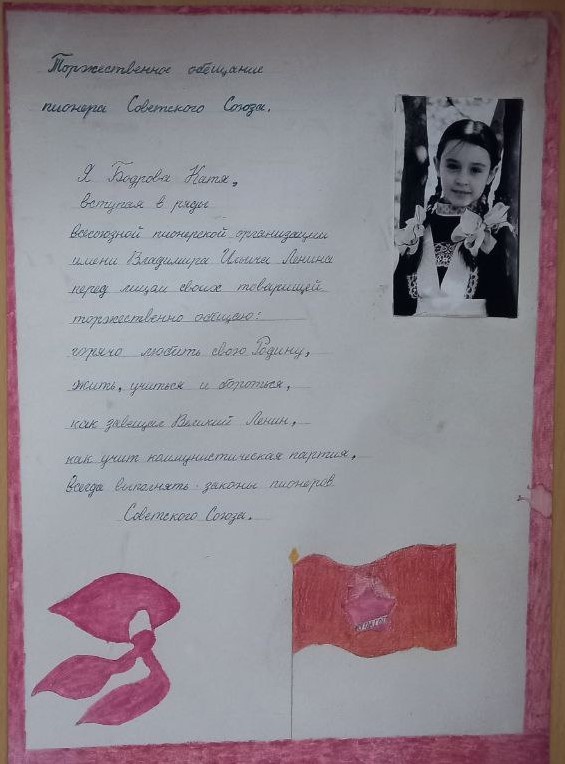 Торжественное обещание
пионера Советского Союза.
Я Бодрова Катя,
вступая в ряды
всесоюзной пионерской организации
имени Владимира Ильича Ленина
перед лицам своих товарищей
торжественно обещею:
горячо любить свою Родину,
жить, учиться и бороться,
как завещал Великий Ленин,
как учит коммунистическая партия,
всегда выполнять законы пионеров
Советского Союза.